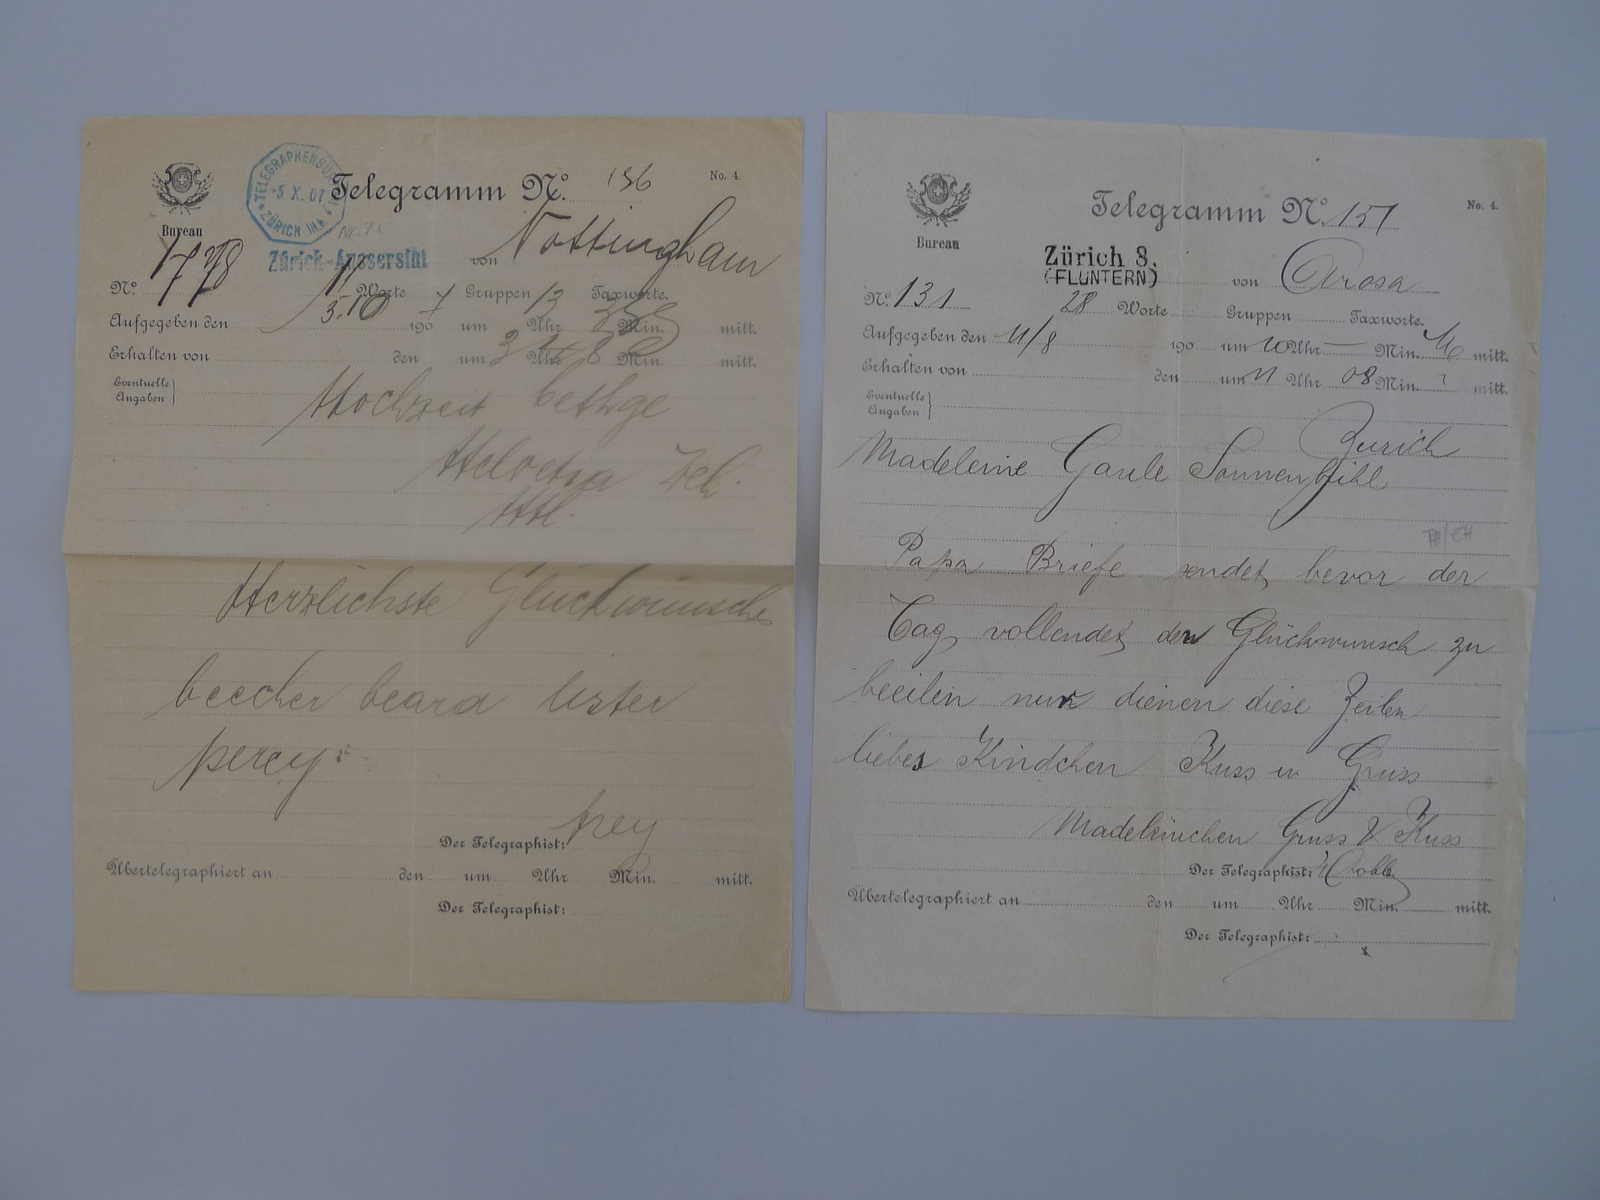 TELEGRAPHENBÜR
-5. X. 07
ZÜRICH III
Telegramm No. 136
No. 4.
Bureau
Zürich-Aussersihl
von Nottingham
No. 778
Worte Gruppen 13 Taxworte.
Aufgegeben den 5.10 1907 um Uhr Min. mitt.
Erhalten von den um Uhr 8 Min. mitt.
Eventuelle
Angaben
Hochzeit bethge
Helvetia Zch.
Herzlichste Glückwünsche
beecher beard lister
percy
Der Telegraphist: frey
Übertelegraphiert an den um Uhr Min. mitt.
Der Telegraphist:
Telegramm No. 151
No. 4.
Bureau
Zürich 8.
(FLUNTERN)
von Arosa
No. 131
28 Worte Gruppen Taxworte.
Aufgegeben den 11/8 190 um 10 Uhr — Min. mitt.
Erhalten von den um 11 Uhr 08 Min. mitt.
Eventuelle
Angaben
Zürich
Madeleine Gaule Sonnenbühl
TB/CH
Papa Briefe sendet, bevor der
Tag, vollendet, den Glückwunsch zu
beeilen nur dienen diese Zeilen
liebes Kindchen Kuss u Gruss
Madeleinchen Gruss & Kuss
Der Telegraphist:
Übertelegraphiert an den um Uhr Min. mitt.
Der Telegraphist: